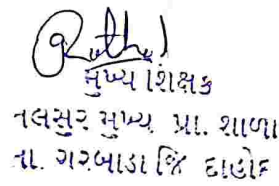 મુખ્ય શિક્ષક
નલસુર મુખ્ય પ્રા. શાળા
તા. ગરબાડા જિ દાહોદ